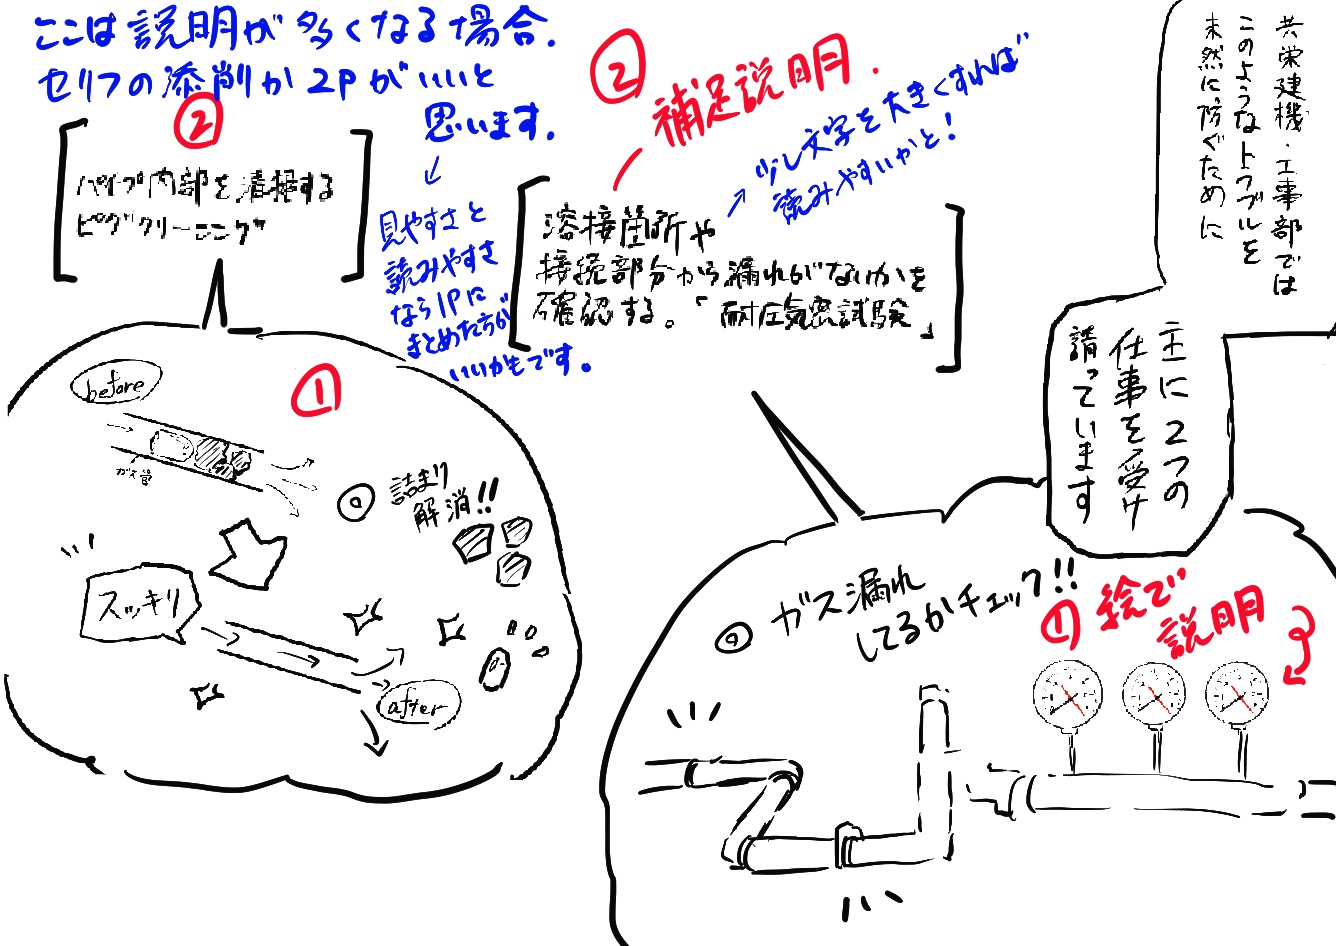 共栄建機・工事部では
このようなトラブルを
未然に防ぐために
主に2つの
仕事を受け
請っています
ここは説明が多くなる場合.
セリフの添削か2Pがいいと
思います.
↓
見やすさと
読みやすさ
なら1Pに
まとめた方が
いいかもです。
②
補足説明.
→少し文字を大きくすれば
読みやすいかと!
溶接箇所や
接続部分から漏れがないかを
確認する。「耐圧気密試験」
◎ガス漏れ
してるかチェック!!
①絵で
説明
②
パイプ内部を清掃する
ピグクリーニング
①
before
ガス管
◎詰まり
解消!!
スッキリ
after